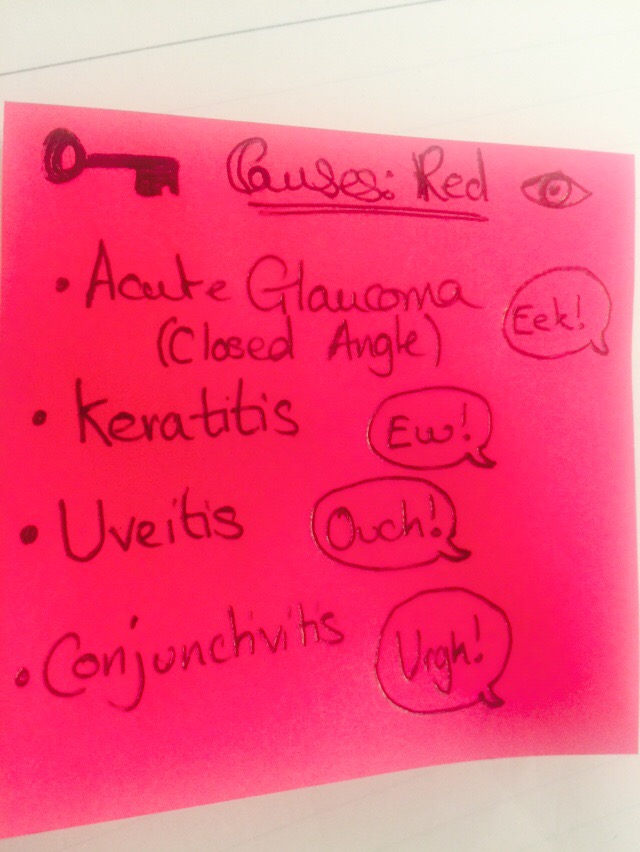 Causes: Red
• Acute Glaucoma
(Closed Angle)
Eek!
• Keratitis
Ew!
• Uveitis
Ouch!
• Conjunctivitis
Urgh!